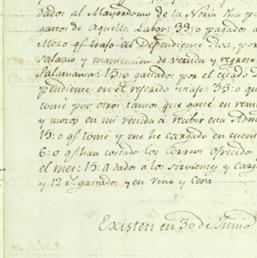 dados al Mayordomo de la Noria
gastos de Aquella Labor: 33: o pagados a
Mozo qe trajo al Dependiente por
salario y manutencion de venida y regreso
Salamanca: 15: o gastados por el cuido d
pendiente en el referido viage: 35: o qu
tomé por otros tantos que gasté en rem
y mozos en mi venida a recibir esta Adm
15: o qe tomé y me he cargado en cuen
6: o qe han costado los Correos
el mes: 15 dados a los sirvientes y Carg
y 12 rs gastados en Vino y Cera
Existen en 30 de Junio